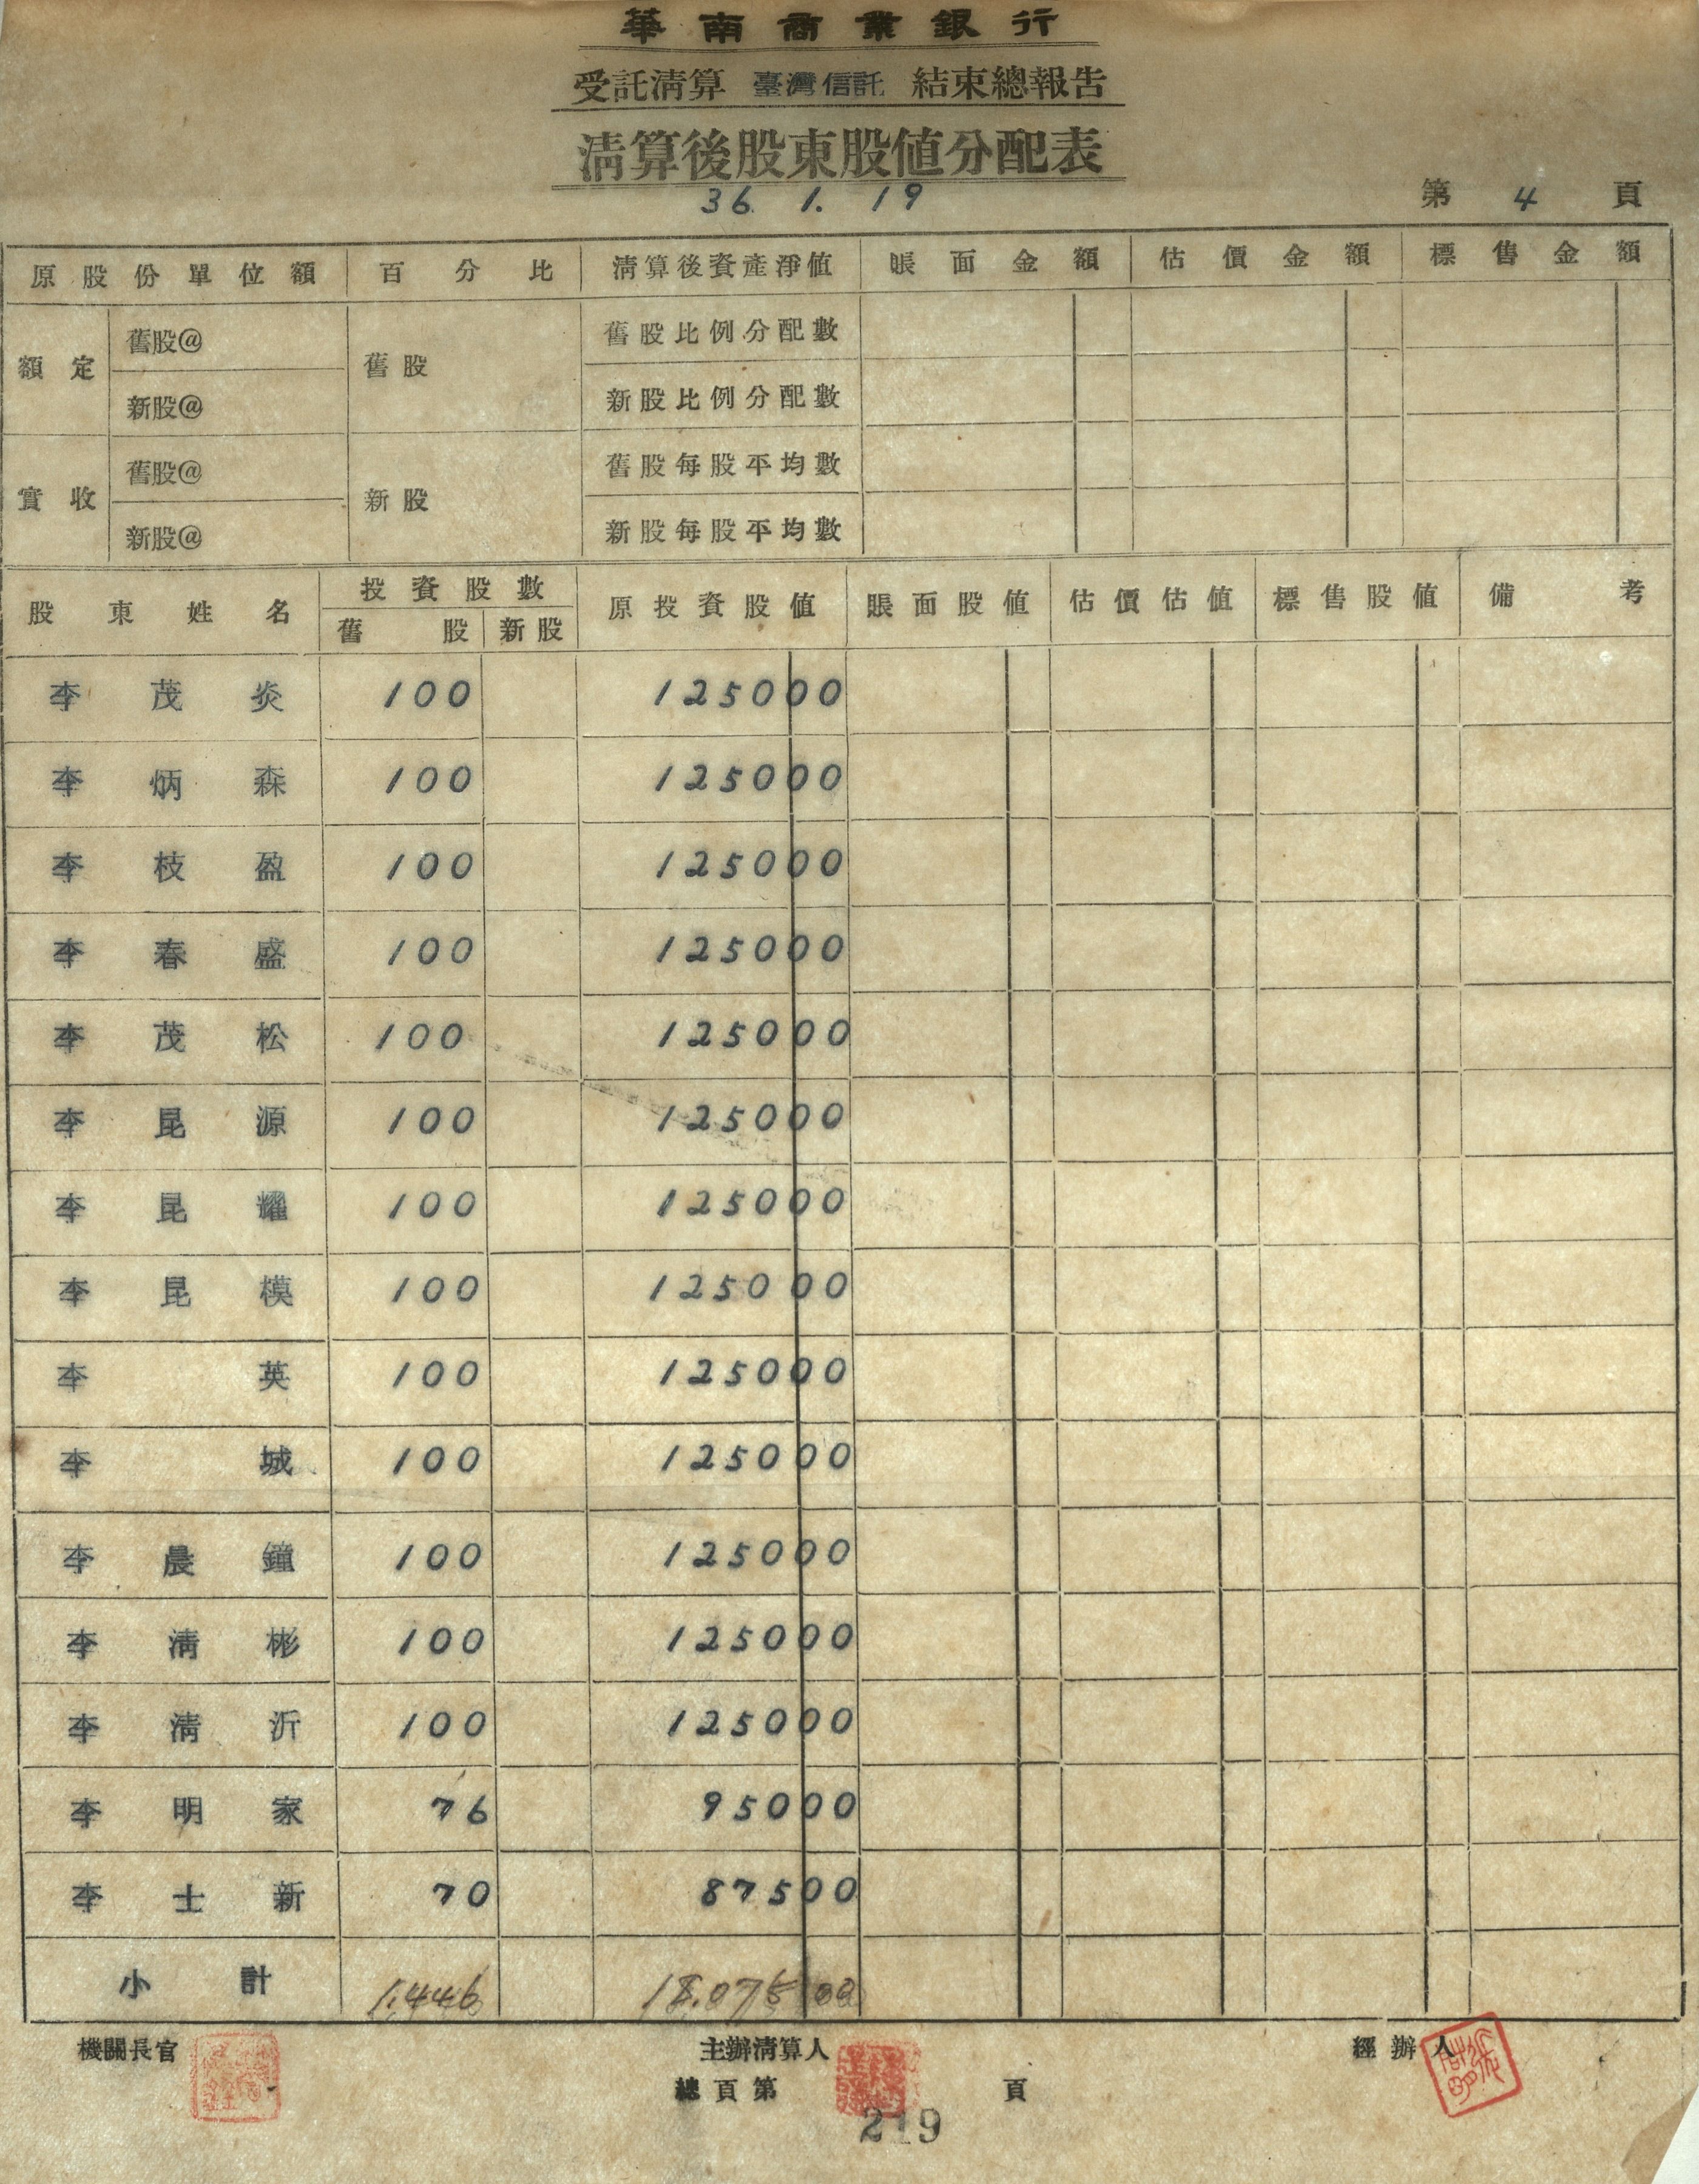 華南商業銀行
受託清算 臺灣信託 結束總報告
清算後股東股值分配表
36. 1. 19
第 4 頁
原股份單位額 百分比 清算後資產淨值 賬面金額 估價金額 標售金額
額定 舊股@ 舊股 舊股比例分配數
新股@ 新股比例分配數
實收 舊股@ 新股 舊股每股平均數
新股@ 新股每股平均數
股東姓名 投資股數 原投資股值 賬面股值 估價估值 標售股值 備考
舊股 新股
李茂炎 100 125000
李炳森 100 125000
李枝盈 100 125000
李春盛 100 125000
李茂松 100 125000
李昆源 100 125000
李昆耀 100 125000
李昆模 100 125000
李英 100 125000
李城 100 125000
李晨鐘 100 125000
李清彬 100 125000
李清沂 100 125000
李明家 76 95000
李士新 70 87500
小計 1,446 18,075 00
機關長官 主辦清算人 經辦人
總頁第 頁
219